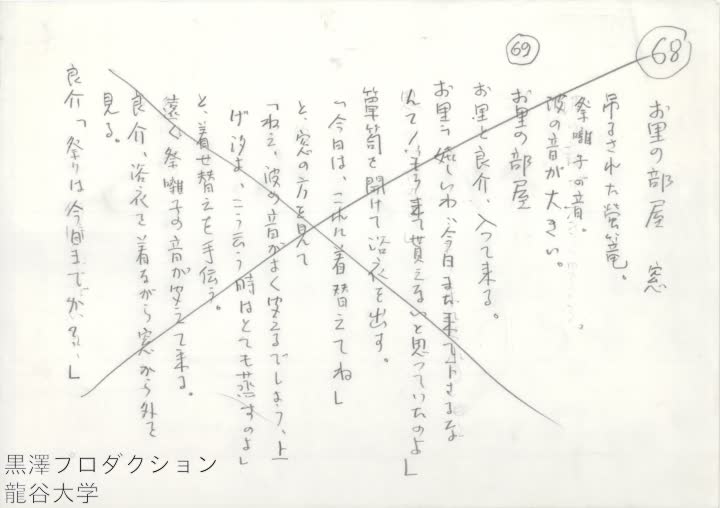 68
お里の部屋 窓
吊るされた螢籠。
祭囃子の音。
波の音が大きい。
69
お里の部屋
お里と良介、入って来る。
お里「嬉しいわ、今日また来て下さるなんて!
もう来て貰えないと思っていたのよ」
箪笥を開けて浴衣を出す。
「今日は、これに着替えてね」
と、窓の方を見て
「ねえ、波の音がよく聞えるでしよう、上
げ汐よ、こう云う時はとても蒸すのよ」
と、着せ替えを手伝う。
遠く祭囃子の音が聞えて来る。
良介、浴衣を着ながら窓から外を
見る。
良介「祭りは今日までかい」
黒澤プロダクション
龍谷大学